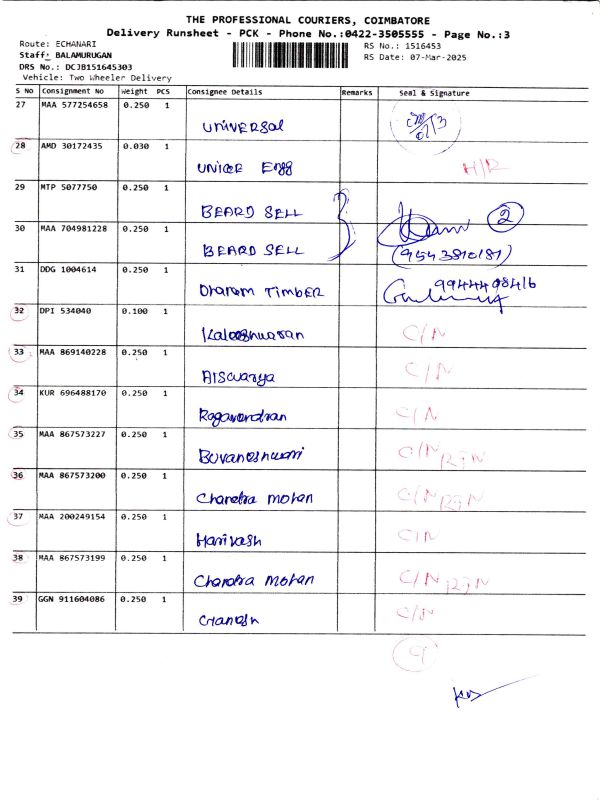 THE PROFESSIONAL COURIERS, COIMBATORE
Delivery Runsheet - PCK - Phone No.:0422-3505555 - Page No.:3
Route: ECHANARI
RS No.: 1516453
Staff: BALAMURUGAN
RS Date: 07-Mar-2025
DRS No.: DCJB151645303
Vehicle: Two Wheeler Delivery
S No Consignment No Weight PCS Consignee Details Remarks Seal & Signature
27 MAA 577254658 0.250 1 UNIVERSAL
28 AMD 30172435 0.030 1 UNIQE Engg H/R
29 MTP 5077750 0.250 1 BEARD SELL 2
30 MAA 704981228 0.250 1 BEARD SELL (9543810181)
31 DDG 1004614 0.250 1 Dharom TIMBER 9944408416
32 DPI 534040 0.100 1 Kaleeshwaran C/N
33 MAA 869140228 0.250 1 AISwarya C/N
34 KUR 696488170 0.250 1 Ragavendran C/N
35 MAA 867573227 0.250 1 Buvaneshwari C/N
36 MAA 867573200 0.250 1 Chandra mohan C/N
37 MAA 200249154 0.250 1 Harivash C/N
38 MAA 867573199 0.250 1 Chandra mohan C/N
39 GGN 911604086 0.250 1 Ganesh C/N
9